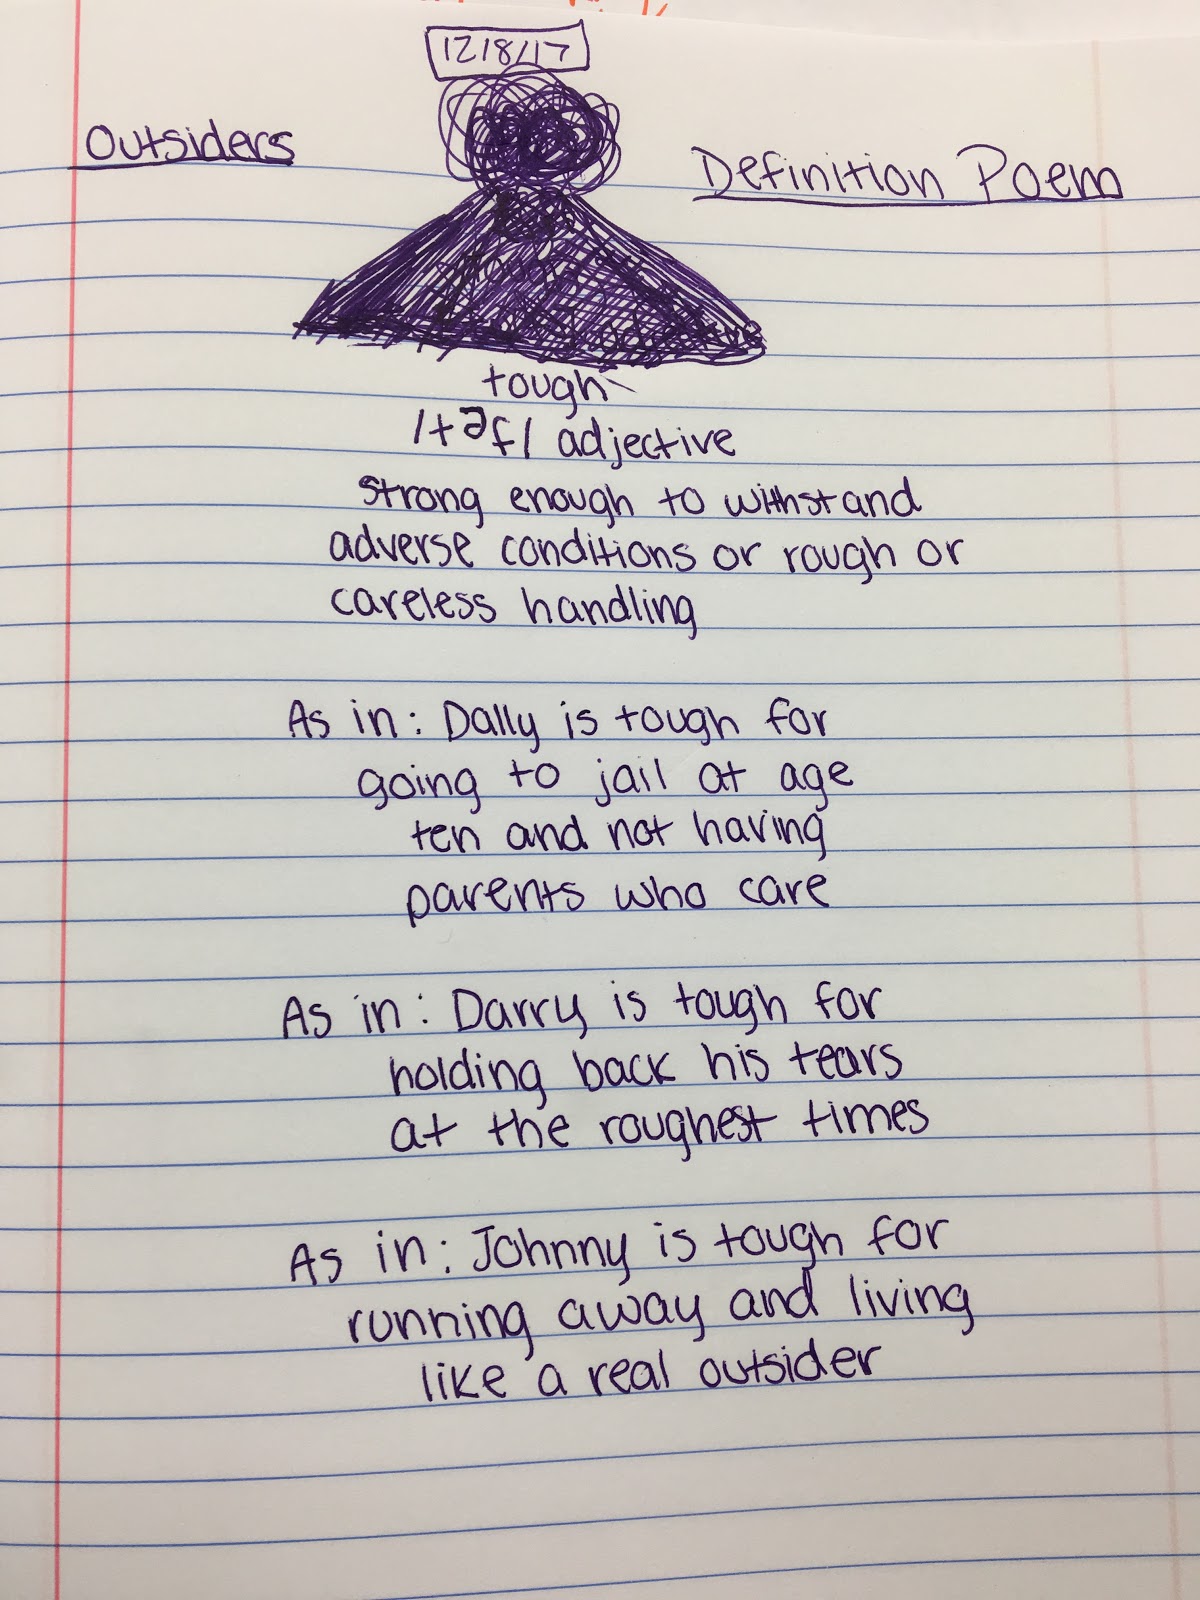 12/8/17
Outsiders
Definition Poem
tough
/təf/ adjective
strong enough to withstand
adverse conditions or rough or
careless handling
As in: Dally is tough for
going to jail at age
ten and not having
parents who care
As in: Darry is tough for
holding back his tears
at the roughest times
As in: Johnny is tough for
running away and living
like a real outsider